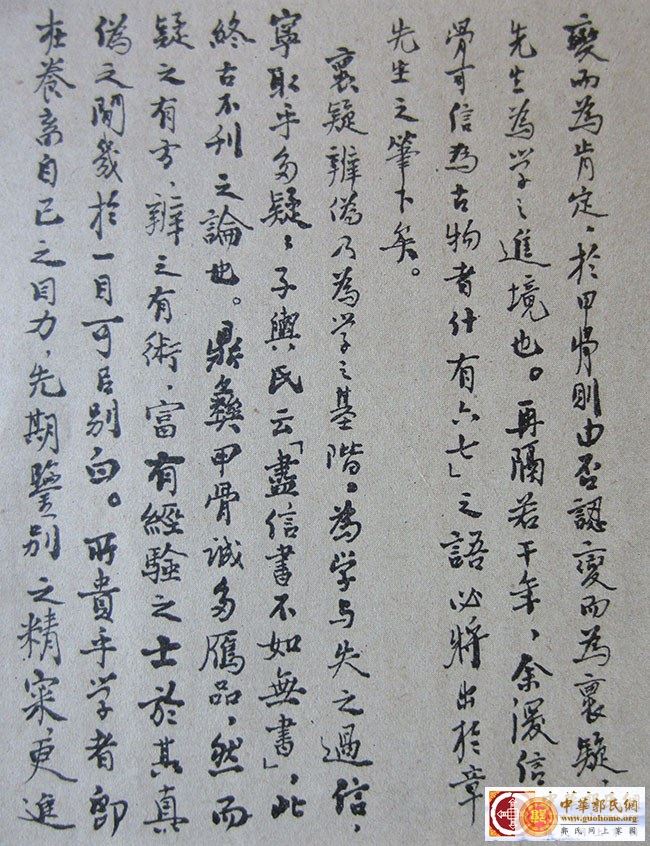 變而為肯定，於甲骨則由否認變而為褱疑，
先生為学之進境也。再隔若干年，余深信
骨可信為古物者什有六七」之語必將出於章
先生之筆下矣。
褱疑辨偽乃為学之基階。為学与失之過信，
寧取乎多疑，子輿氏云「盡信書不如無書」，此
終古不刊之論也。鼎彝甲骨诚多贋品，然而
疑之有方，辨之有術，富有經驗之士於其真
偽之間幾於一目可㠯别白。所貴乎学者卽
在養畜自己之目力，先期鑒别之精案，更進
中華郭氏網
www.guohome.org
郭氏网上家園